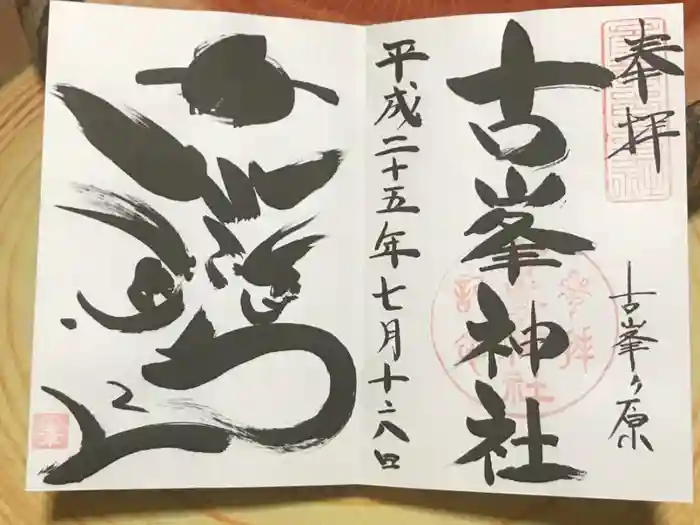 奉拝
古峯ヶ原
古峯神社
平成二十五年七月十六日